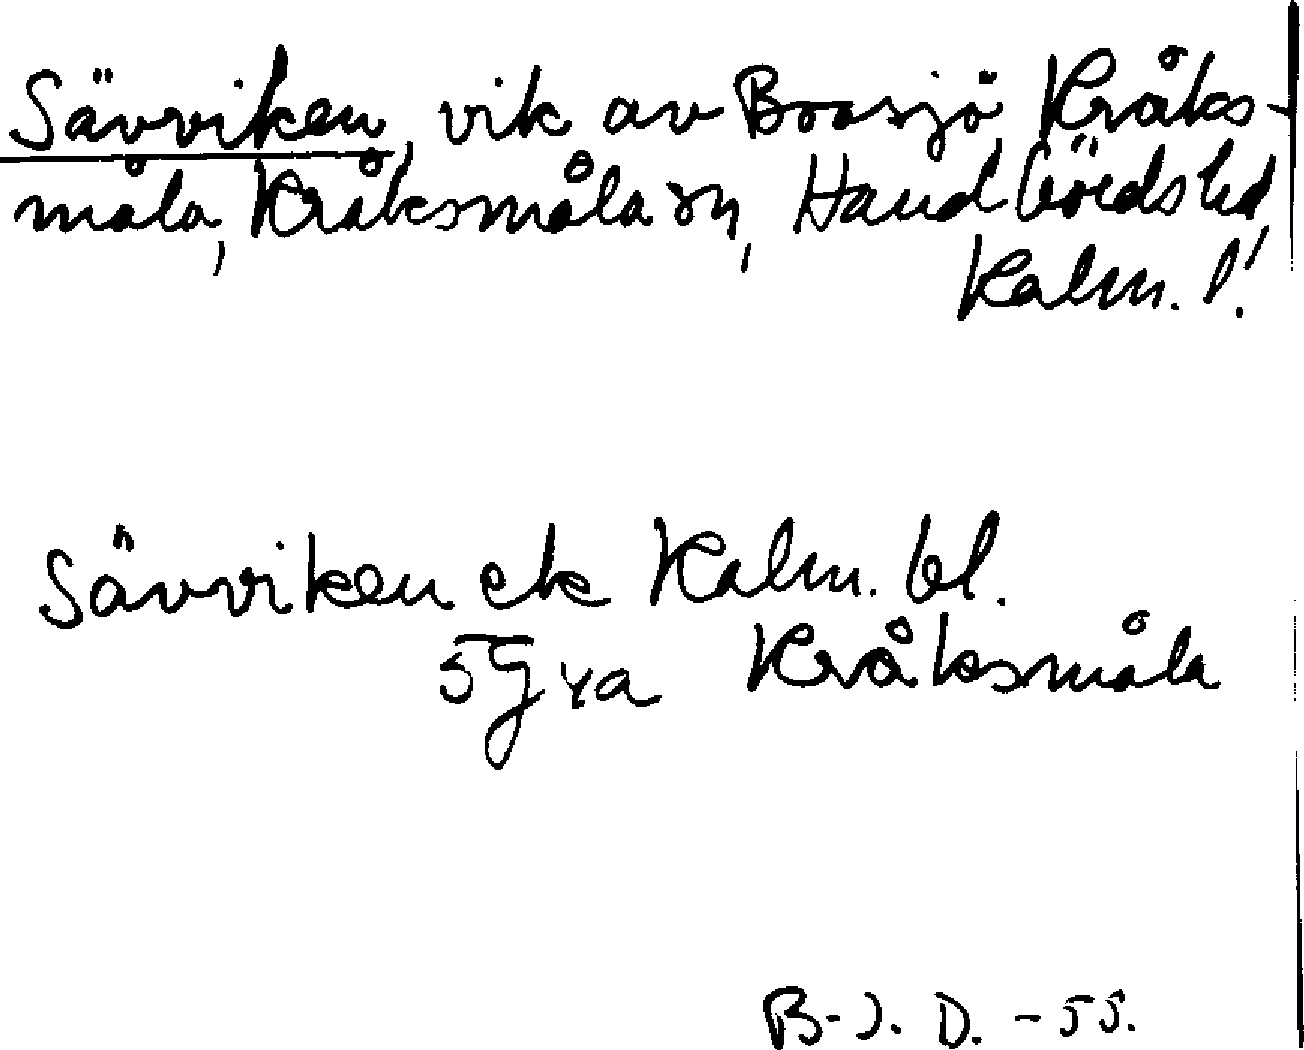 Sävviken, vik av Boasjö, Kråks-
måla, Kråksmåla sn, Handbörds hd
Kalm. l.
Sävviken ek Kalm. bl.
5G xa Kråksmåla
B-J. D. -55.